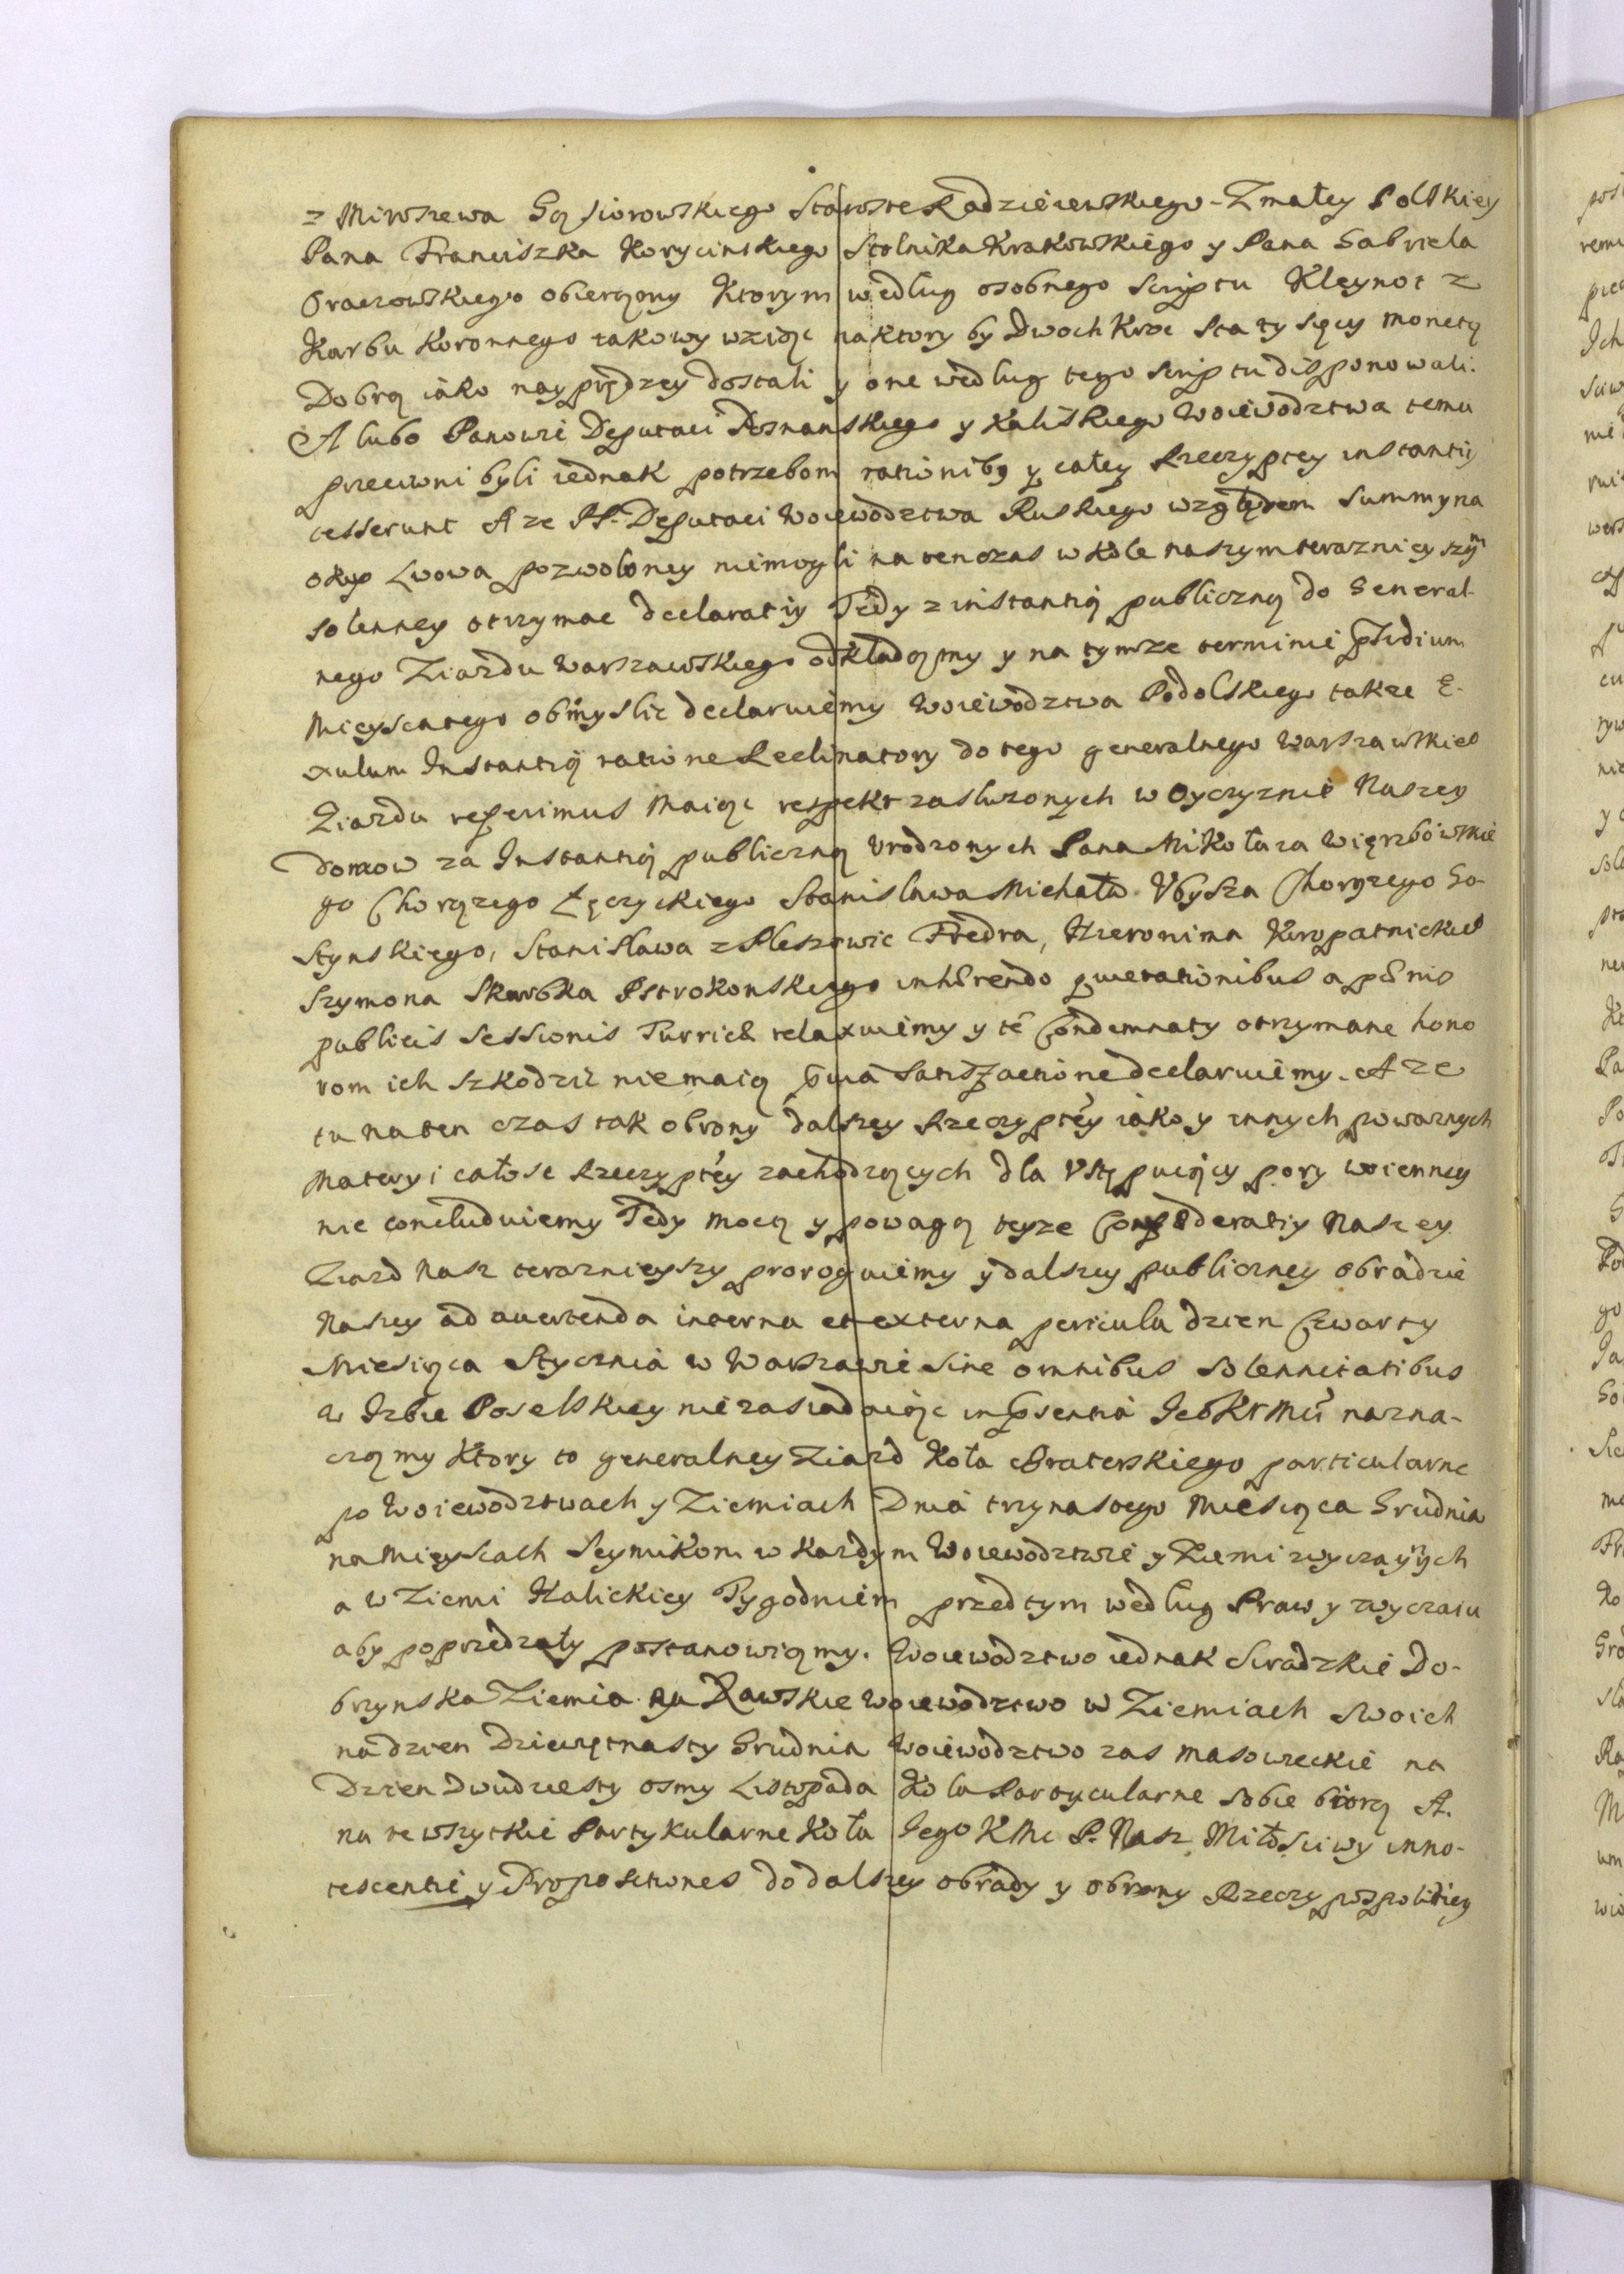 z Mirszewa Gąsiorowskiego Starostę Radzieiewskiego - Z małey Polskiey
Pana Franciszka Korycinskiego Stolnika Krakowskiego y Pana Gabriela
Oraczowskiego obierzemy Ktorym według osobnego Scriptu Kleynot z
Karbu Koronnego takowy wziąć na ktory by Dwoch Kroc sta tysięcy monetą
Dobrą iako nayprędzey dostali y one według tego scriptu disponowali.
A lubo Panowie Deputaci Poznanskiego y Kaliskiego Woiewodztwa temu
przeciwni byli iednak potrzebom rationibq y całey Rzeczyptey instantij
cesserunt A ze PP. Deputaci Woiewodztwa Ruskiego względem Summy na
okup Lwowa pozwoloney niemogli na tenczas w Kole naszym teraznieyszym
solenney otrzymac declaratij Tedy z instantią publiczną do General-
nego Ziazdu Warszawskiego odkładamy y na tymze terminie psidium
Mieysca tego obmyslic declaruiemy Woiewodztwa Podolskiego takze E-
xulum Instantią ratione Reclinatory do tego generalnego Warszawskieo
Ziazdu referimus Maiąc respekt zasluzonych w Oyczyznie Naszey
domow za Instantią publiczną Vrodzonych Pana Mikołaia Więrzbowskie
go Chorązego Łęczyckiego Stanisława Michała Vbysza Chorązego Go-
stynskiego, Stanisława z Pleszowic Fredra, Hieronima Kuropatnickieo
Szymona Skarbka Pstrokonskiego inhærendo quietationibus a pænis
publicis Sessionis Turrich relaxuiemy y te Condemnaty otrzymane hono
rom ich szkodzic nie maią Satisfactione declaruiemy. A ze
tu na ten czas tak obrony dalszey Rzeczyptey iako y innych powaznych
Matery i całosc Rzeczyptey zachodzących dla Vstępuiący pory woienney
nie concluduiemy Tedy mocą y powagą teyze Confæderatij Naszey
Ziazd Nasz teraznieyszy proroguiemy y dalszey publiczney obradzie
Naszey ad auertenda interna et externa pericula dzien Czwarty
Miesiąca Stycznia w Warszawie sine omnibus solennitatibus
w Izbie Poselskiey nie zasiadaiąc in psentia IeoKrMci nazna-
czamy Ktory to generalney Ziazd Koła Braterskiego particularne
po Woiewodztwach y Ziemiach Dnia trzynastego Miesiąca Grudnia
na Mieyscach Seymikom w Kazdym Woiewodztwie y Ziemi zwyczaynych
a w Ziemi Halickiey Tygodniem przed tym według Praw y zwyczaiu
aby poprzedzały postanowiamy. Woiewodztwo iednak Siradzkie Do-
brzynska Ziemia Rawskie Woiewodztwo w Ziemiach swoich
na dzien Dziewiętnasty Grudnia Woiewodztwo zas Masowieckie na
Dzien Dwudziesty osmy Listopada Kola Partycularne sobie biorą A.
na te wszytkie Partykularne Koła Iego KMc P. Nasz Miłosciwy inno-
tescentie y Propositiones do dalszey obrady y obrony Rzeczypospolitiey